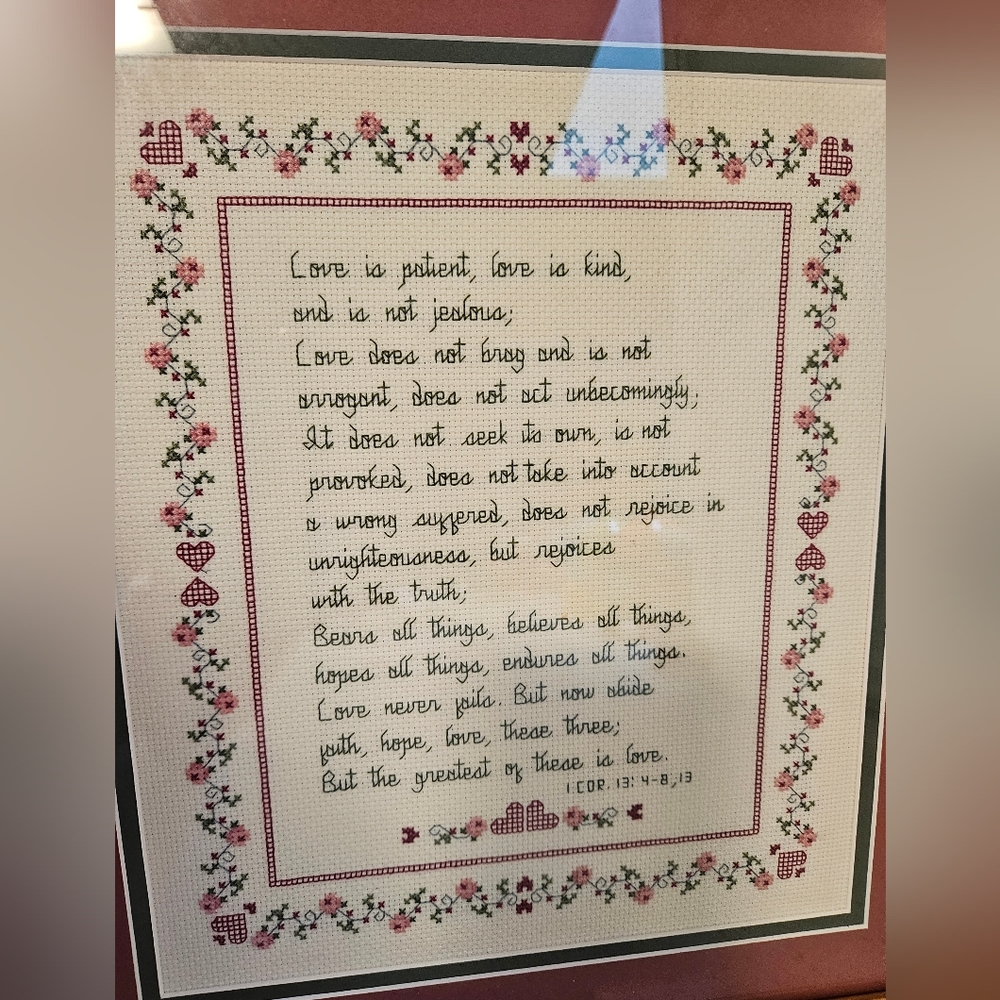 Love is patient, love is kind,
and is not jealous;
Love does not brag and is not
arrogant, does not act unbecomingly;
It does not seek its own, is not
provoked, does not take into account
a wrong suffered, does not rejoice in
unrighteousness, but rejoices
with the truth;
Bears all things, believes all things,
hopes all things, endures all things.
Love never fails. But now abide
faith, hope, love, these three;
But the greatest of these is love.
1 COR. 13: 4-8, 13